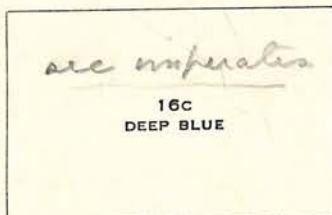 see imperates
16c
DEEP BLUE